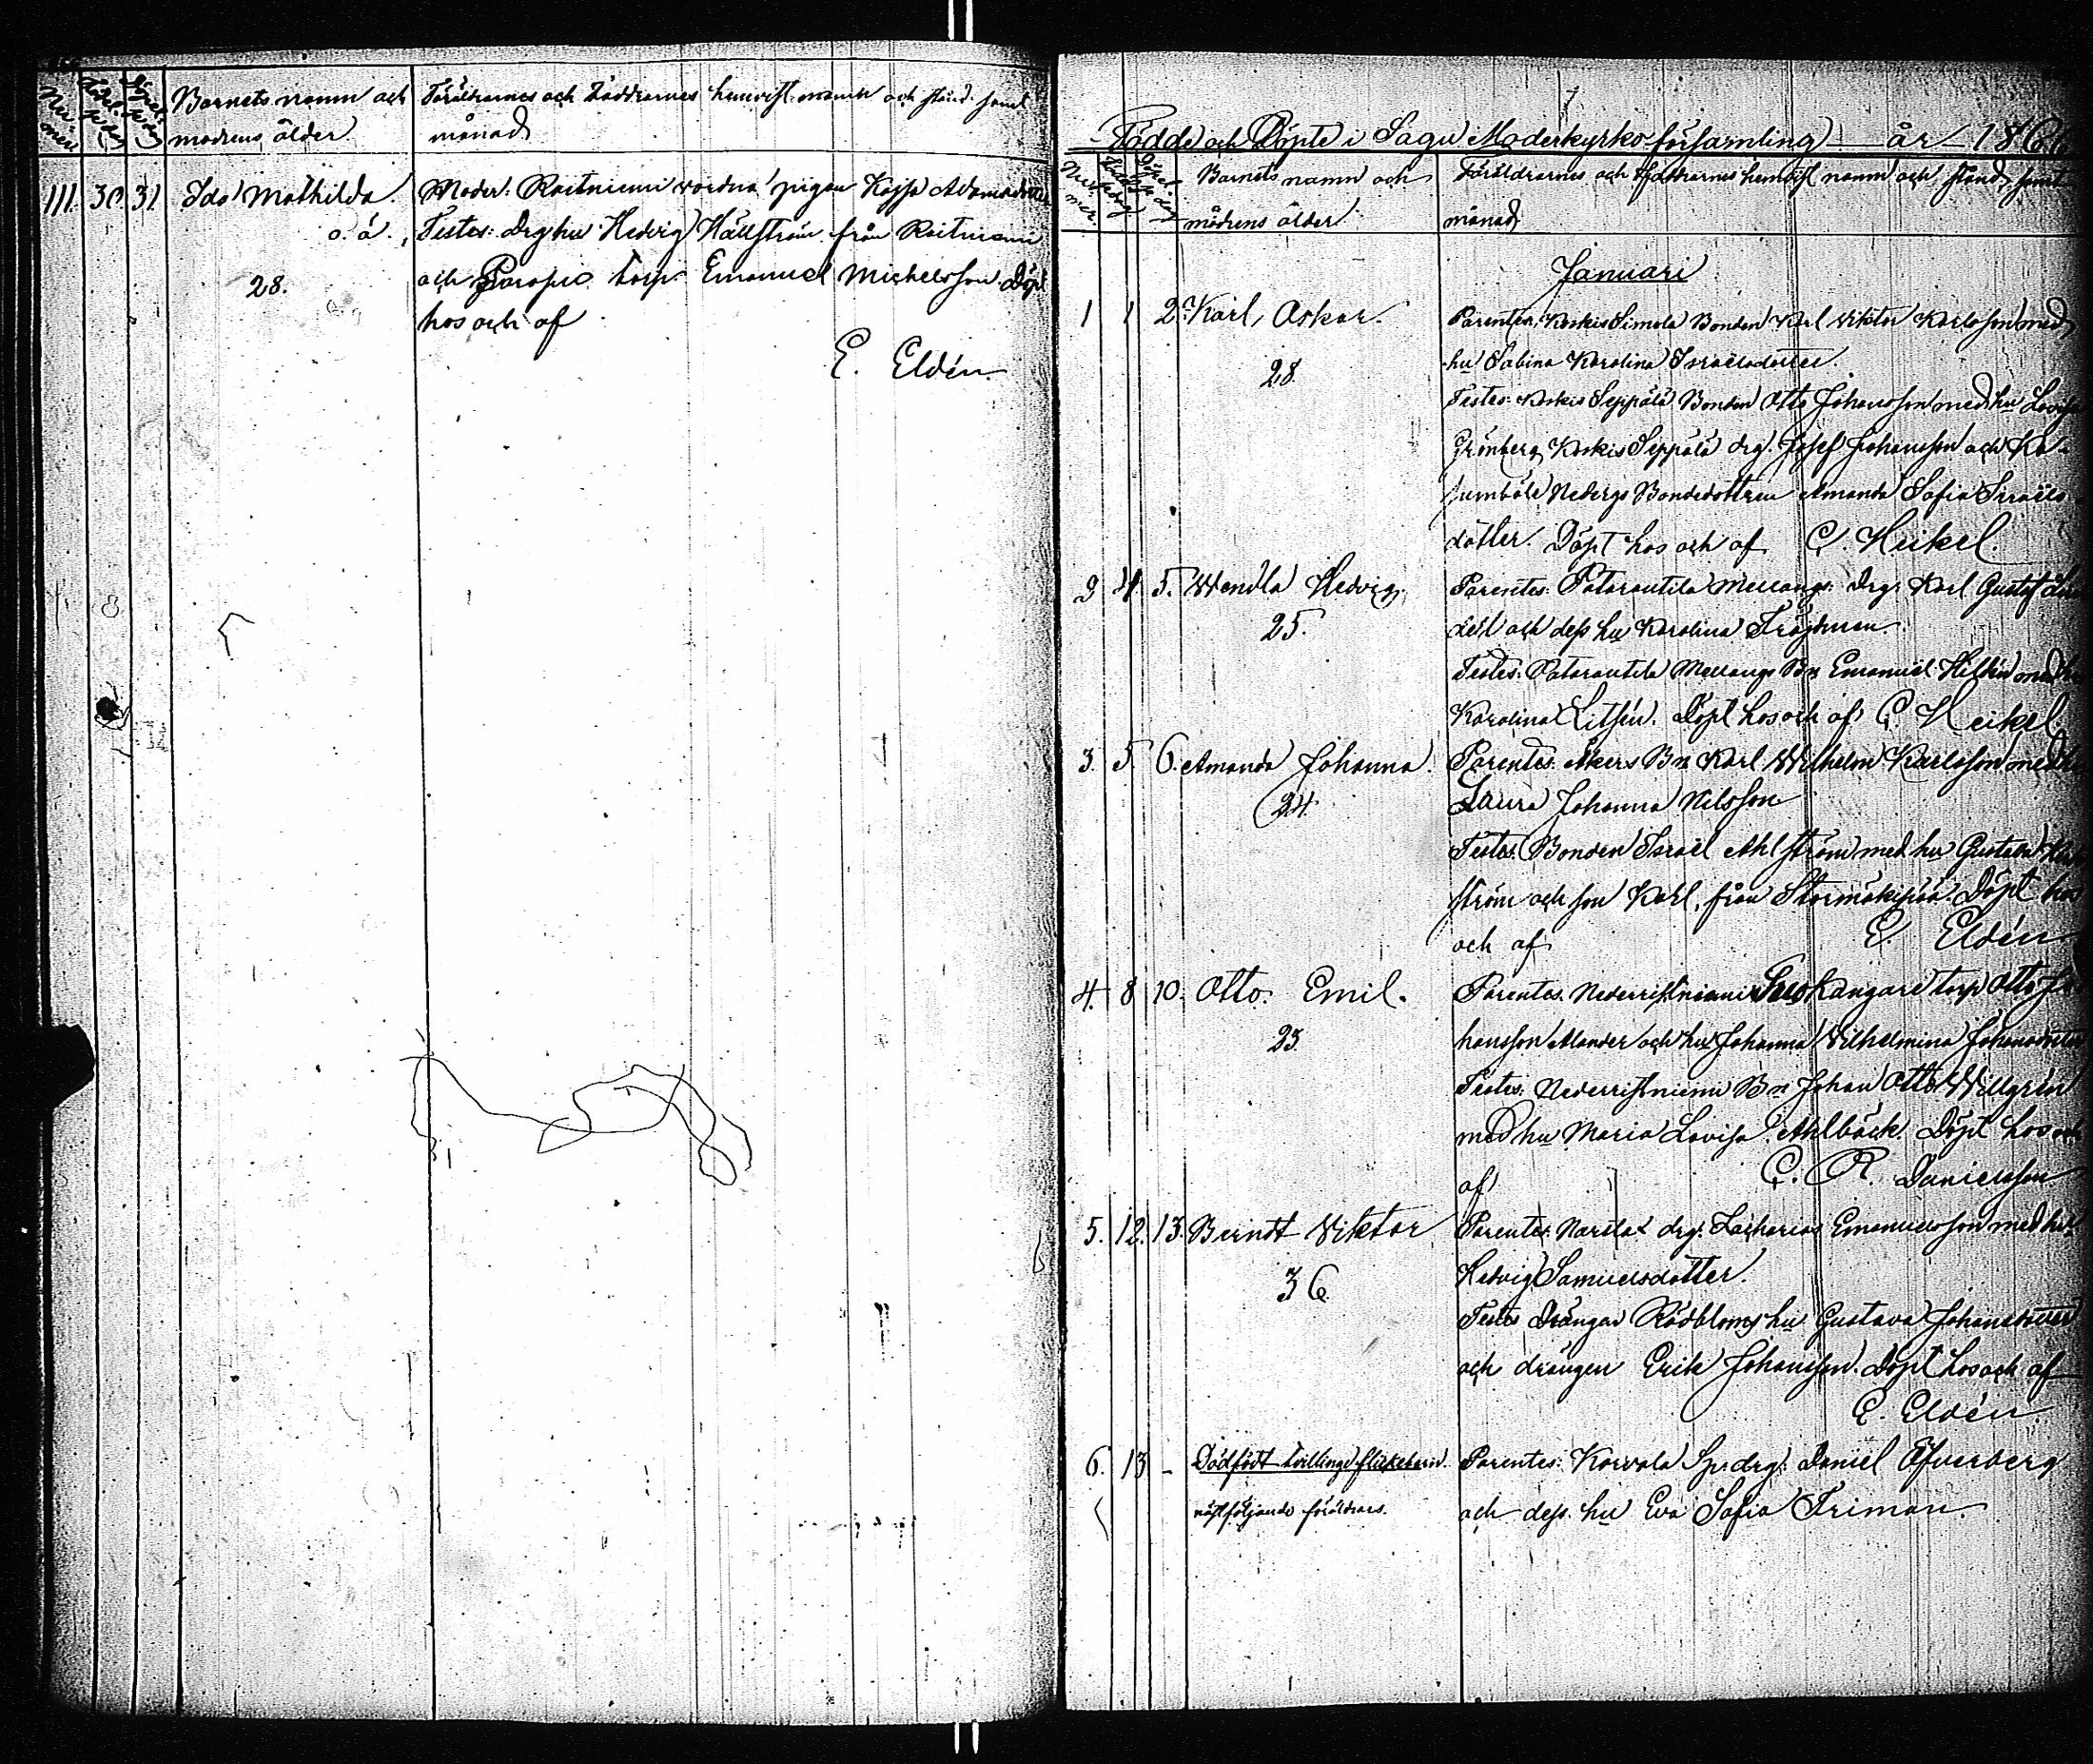 Nu-
mer
Födel-
sedag
Döpel-
sedag
Barnets namn och
modrens ålder
Föräldrarnes och Faddrarnes hemvist namn och stånd samt
månad
111. 30. 31. Ida Mathilda.
o. ä.
28.
Moder: Raitniemi vordna pigan Kajsa Adamsdotter
Testes: Drghu Hedvig Hällström från Raitniemi
och torp. Emanuel Michelsson. Döpt
hos och af
E. Eldén.
Födde och Döpte i Sagu Moderkyrko församling år 186
Num-
mer
Barnets namn och
mödrens ålder
Föräldrarnes och Faddrarnes hemvist namn och stånd samt
månad
Januari
1 1 2. Karl Oskar.
28.
Parentes: Koskis Simola Bonden Karl Viktor Karlsson med
hu Sabina Karolina Israelsdotter.
Testes: Koskis Seppälä Bonden Otto Johansson med hu Lovisa
Grönberg, Koskis Seppälä drg. Josef Johansson och
Nedergs Bondedottren Amanda Sofia Israels
dotter. Döpt hos och af C. Heikel.
2 4. 5. Wendla Hedvig.
25.
Parentes: Patarautila Mellangs: Drg: Karl Gustaf
dell och dess hu Karolina Tröjman.
Testes: Patarautila Mellangs Bn Emanuel Hellén med hu
Karolina Litsén. Döpt hos och af C. Heikel.
3. 5. 6. Amanda Johanna.
24.
Parentes: Åkers Bn Karl Wilhelm Karlsson med hu
Laura Johanna Nilsson
Testes: Bonden Israel Ahlström med hu Gustava
ström och son Karl, från Stormäkipää. Döpt hos
och af E. Eldén
4. 8 10. Otto Emil.
23.
Parentes. Nederristniemi kangare torp Otto Jo
hansson Alander och hu Johanna Vilhelmina Johansdotter
Testes: Nederristniemi Bn Johan Otto Willgrén
med hu Maria Lovisa Ahlbäck. Döpt hos och
af C. R. Danielsson
5. 12. 13. Berndt Viktor
36
Parentes: Narsla drg: Zacharias Emanuelsson med hu
Hedvig Samuelsdotter.
Testes Drängar Rödbloms hu Gustava Johansdotter
och drängen Erik Johansson. Döpt hos och af
E. Eldén.
6. 13 - Dödfödt tvillinge flickebarn.
nästföljande föräldrars.
Parentes: Korvala Sp. drg: Daniel Öfverberg
och dess hu Eva Sofia Friman.